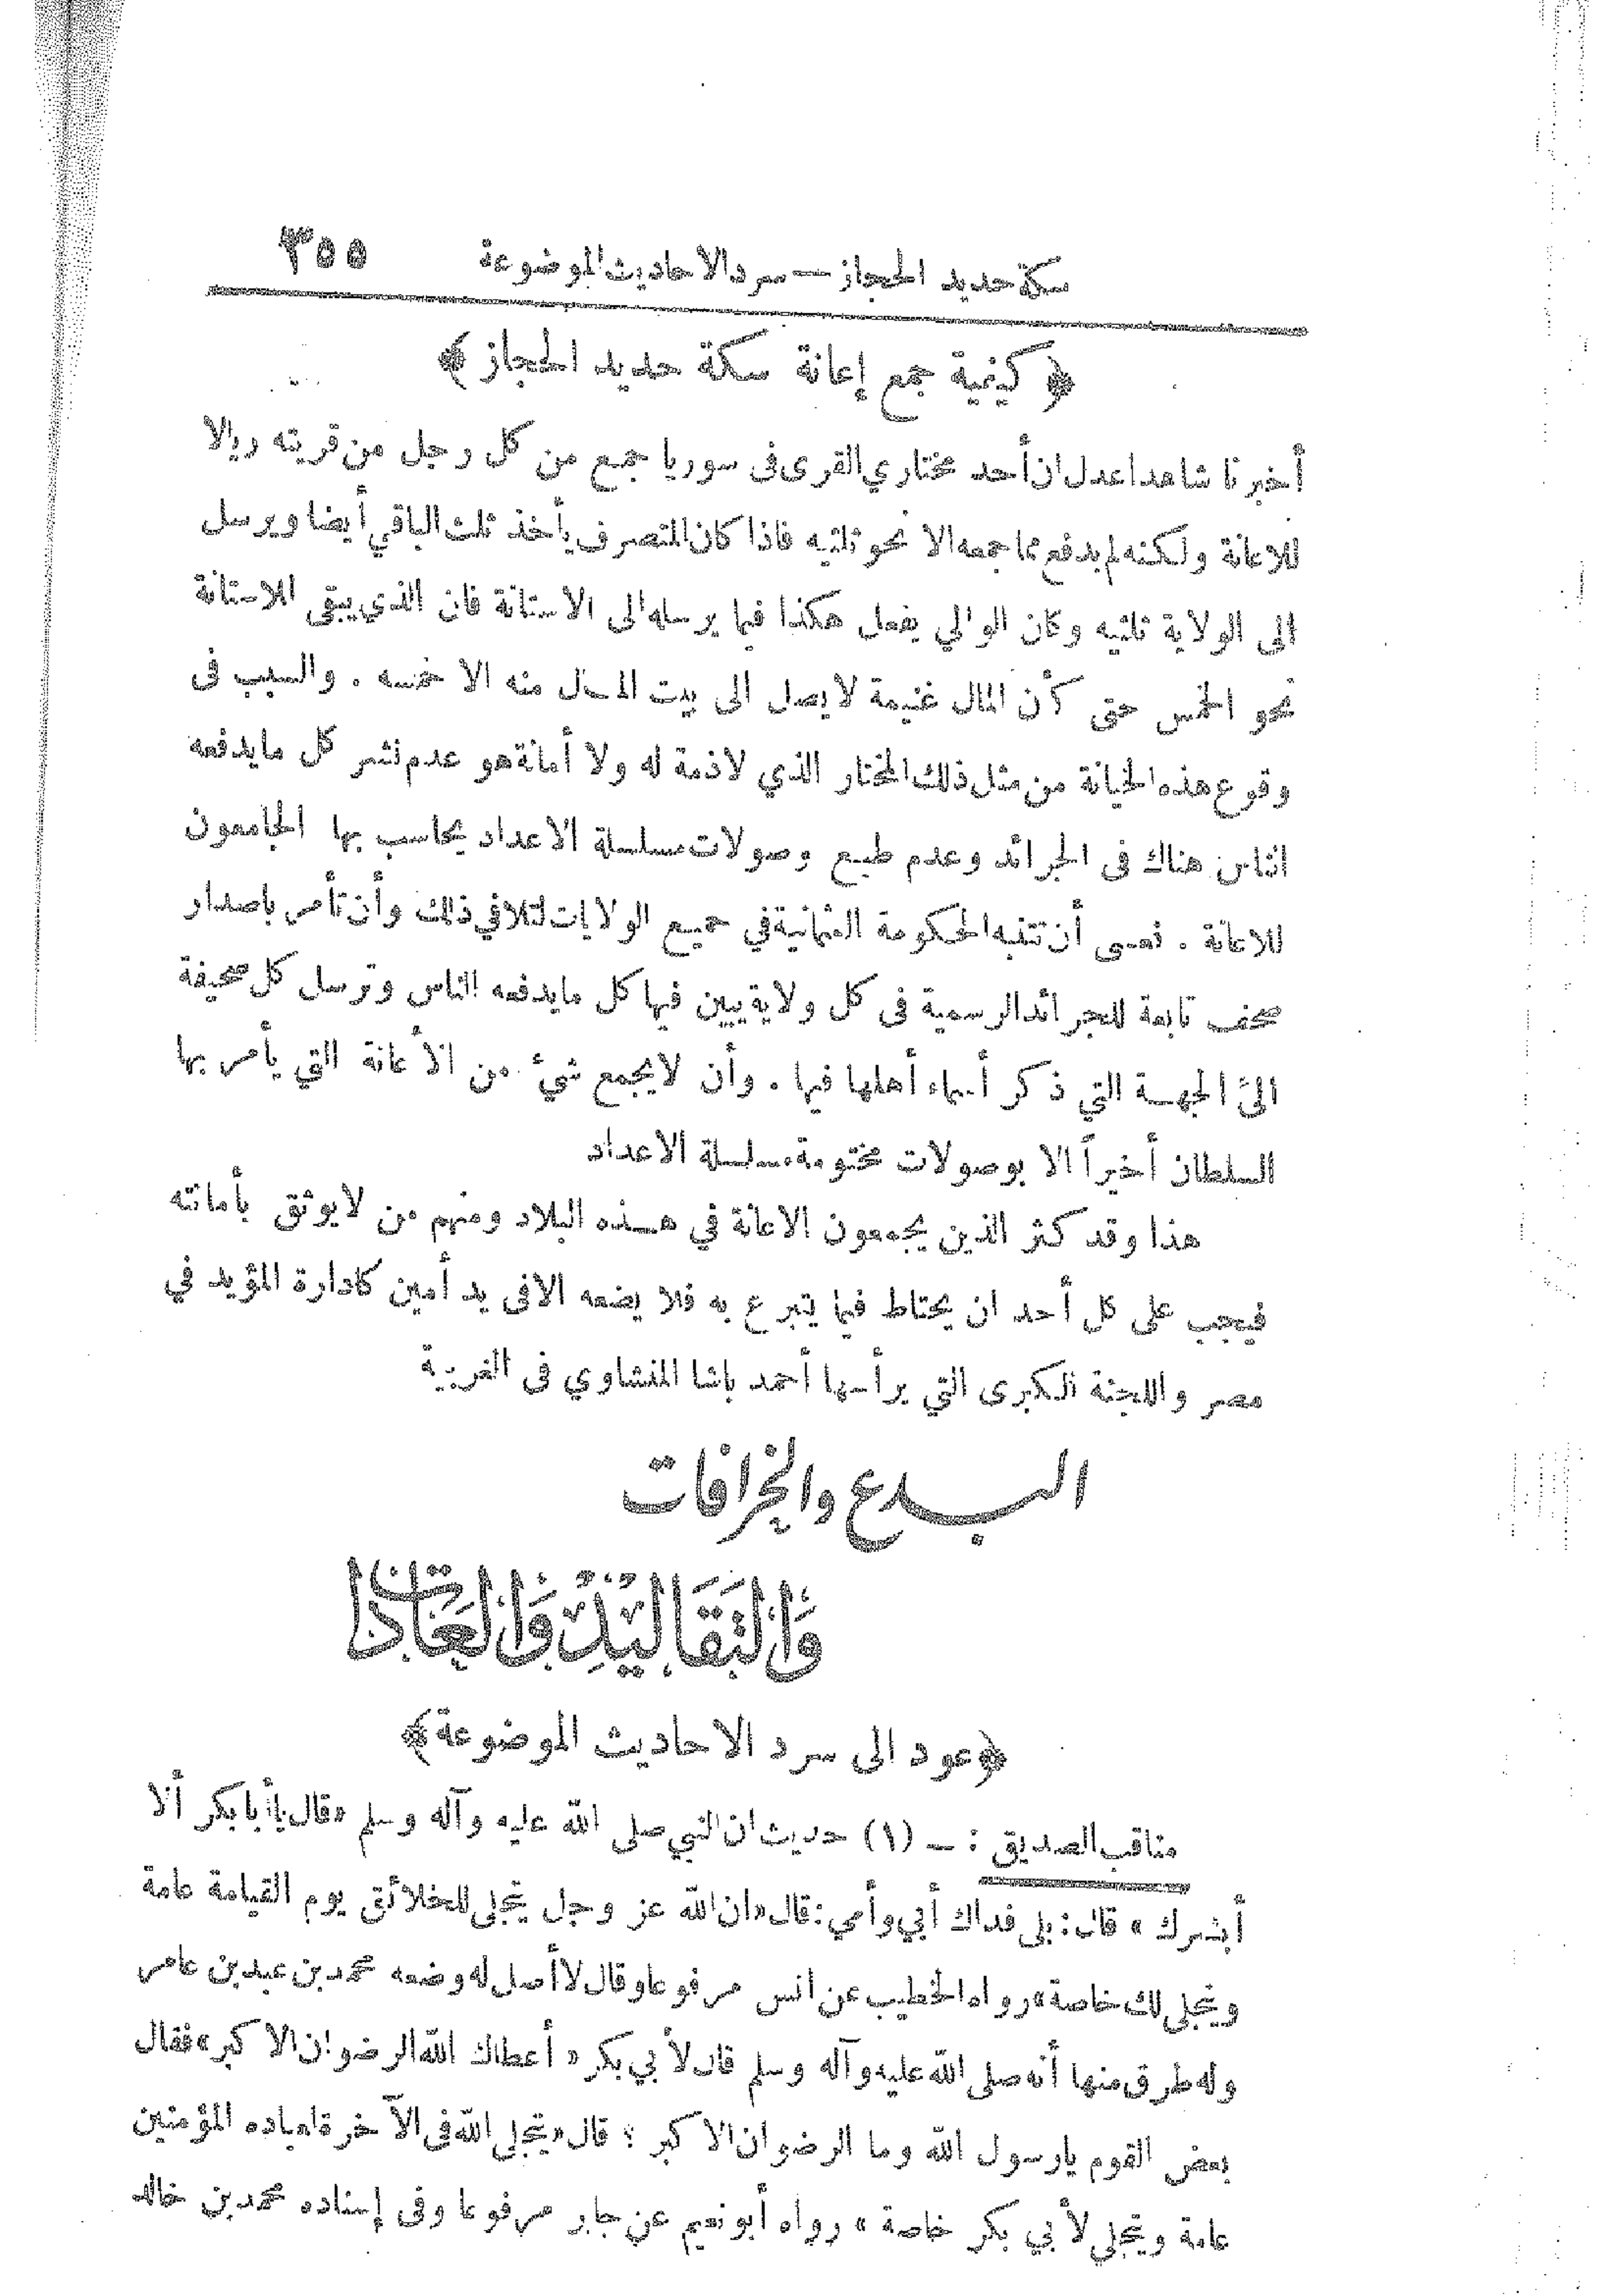 سكة حديد الحجاز — سرد الاحاديث الموضوعة ٣٥٥
﴿ كيفية جمع إعانة سكة حديد الحجاز ﴾
أخبرنا شاهدا عدل ان أحد مختاري القرى فى سوريا جمع من كل رجل من قريته ريالا
للاعانة ولكنه لم يدفع مما جمعه الا نحو ثلثيه فاذا كان المتصرف يأخذ ثلث الباقي أيضا ويرسل
الى الولاية ثلثيه وكان الوالي يفعل هكذا فيما يرسله الى الاستانة فان الذي يبقى للاستانة
نحو الخمس حتى كأن المال غنيمة لا يصل الى بيت المال منه الا خمسه . والسبب فى
وقوع هذه الخيانة من مثل ذلك المختار الذي لا ذمة له ولا أمانة هو عدم نشر كل ما يدفعه
الناس هناك فى الجرائد وعدم طبع وصولات مسلسلة الاعداد يحاسب بها الجامعون
للاعانة . فعسى أن تتنبه الحكومة العثمانية في جميع الولايات لتلافي ذلك وأن تأمر باصدار
صحف تابعة للجرائد الرسمية فى كل ولاية يبين فيها كل ما يدفعه الناس وترسل كل صحيفة
الى الجهة التي ذكر أسماء أهلها فيها . وأن لا يجمع شيء من الأعانة التي يأمر بها
السلطان أخيراً الا بوصولات مختومة مسلسلة الاعداد
هذا وقد كثر الذين يجمعون الاعانة في هذه البلاد ومنهم من لا يوثق بأمانته
فيجب على كل أحد ان يحتاط فيما يتبرع به فلا يضعه الا فى يد أمين كادارة المؤيد في
مصر واللجنة الكبرى التي يرأسها أحمد باشا المنشاوي فى الغربية
البدع والخرافات
وَالتَّقَالِيْدِ وَالْعَادَات
﴿عود الى سرد الاحاديث الموضوعة﴾
مناقب الصديق : — (١) حديث ان النبي صلى الله عليه وآله وسلم «قال يا أبا بكر ألا
أبشرك » قال : بلى فداك أبي وأمي : قال «ان الله عز وجل يتجلى للخلائق يوم القيامة عامة
ويتجلى لك خاصة» رواه الخطيب عن انس مرفوعا وقال لا أصل له وضعه محمد بن عبد بن عامر
وله طرق منها أنه صلى الله عليه وآله وسلم قال لأبي بكر « أعطاك الله الرضوان الاكبر» فقال
بعض القوم يارسول الله وما الرضوان الاكبر ؟ قال «يتجلى الله فى الآخرة لعباده المؤمنين
عامة ويتجلى لأبي بكر خاصة » رواه أبو نعيم عن جابر مرفوعا وفى إسناده محمد بن خالد